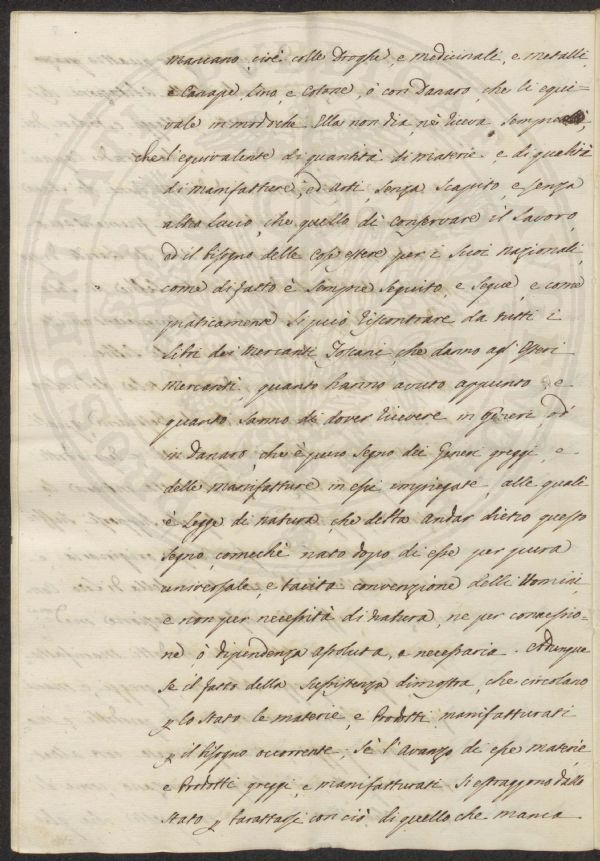 mancano, cioè colle Droghe, e medicinali, e metalli
e Canape, Lino, e Cotone, ò con Danaro, che li equi=
vale in modoche Ella non dia, nè riceva Sempre
che l'equivalente di quantità di materie e di qualità
di manifatture, ed Arti, Senza Scapito, e Senza
altro Lucro, che quello di conservare il Lavoro,
ed il bisogno delle Cose estere per i Suoi nazionali,
come di fatto è Sempre Seguito, e Segue, e come
praticamente Si può riscontrare da tutti i
Libri dei Mercanti Toscani, che danno agl'Esteri
Mercanti, quanto hanno avuto appunto e
quanto Sanno di dover ricevere in Generi, ò
in Danaro, che è puro Segno dei Generi greggi, e
delle Manifatture in essi impiegate, alle quali
è Legge di natura, che detta andar dietro questo
Segno, comechè nato dopo di esse per pura
universale, e tacita convenzione delli Uomini,
e non per necessità di natura, ne per concessio=
ne, ò dipendenza assoluta, e necessaria. Adunque
Se il fatto della Sussistenza dimostra, che circolano
p lo Stato le materie, e Prodotti manifatturati
p il bisogno occorrente; Se l'Avanzo di esse materie
e Prodotti greggi, e manifatturati Si estraggono dallo
Stato p barattarsi con ciò di quello che manca